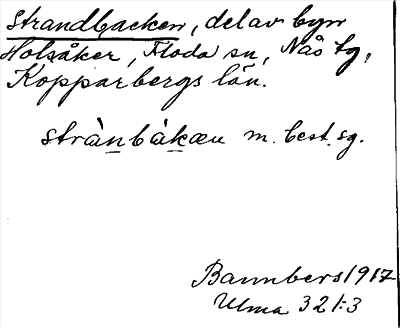 Strandbacken, del av byn
Holsåker, Floda sn, Nås tg,
Kopparbergs län.
strànbàkæn m. best. sg.
Bannbers 1917
Ulma 321:3